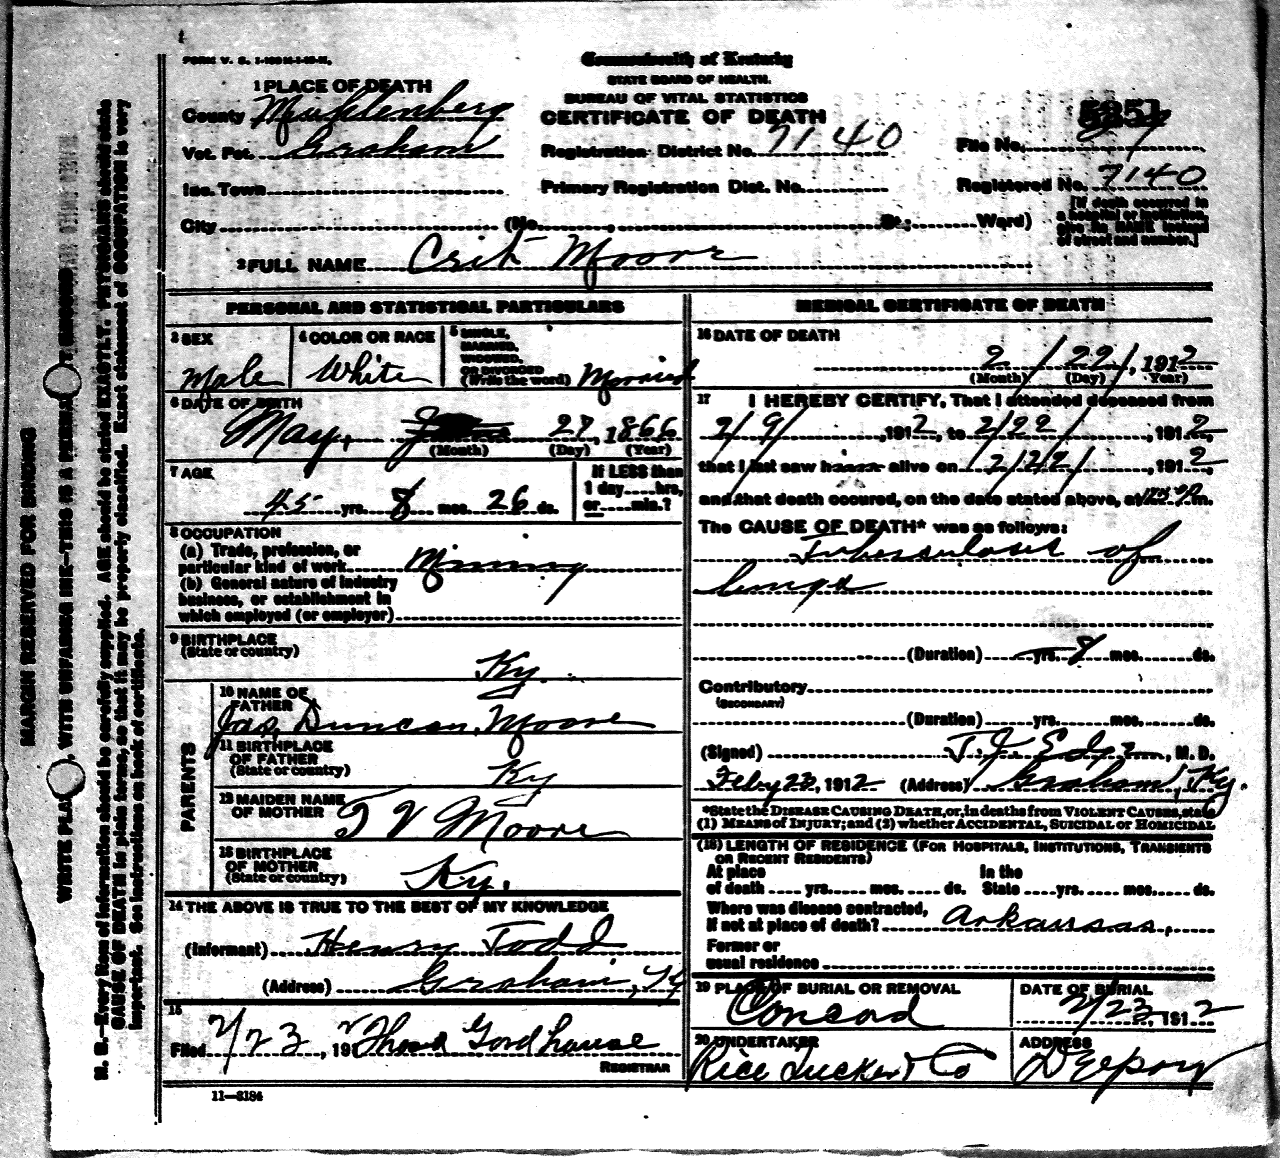 FORM V. S. 1-
Commonwealth of Kentucky
STATE BOARD OF HEALTH.
BUREAU OF VITAL STATISTICS
CERTIFICATE OF DEATH
1 PLACE OF DEATH
County Muhlenberg
Vot. Pct. Graham
Inc. Town
City (No. , St.; Ward)
Registration District No. 7140
Primary Registration Dist. No.
File No.
Registered No. 7140
[If death occurred in
a hospital or institution,
give its NAME instead
of street and number.]
2 FULL NAME Crit Moore
PERSONAL AND STATISTICAL PARTICULARS
3 SEX
Male
4 COLOR OR RACE
White
5 SINGLE,
MARRIED,
WIDOWED,
OR DIVORCED
(Write the word) Married
6 DATE OF BIRTH
May, 27, 1866
(Month) (Day) (Year)
7 AGE
45 yrs. 8 mos. 26 ds.
If LESS than
1 day hrs,
or min.?
8 OCCUPATION
(a) Trade, profession, or
particular kind of work Mining
(b) General nature of industry
business, or establishment in
which employed (or employer)
9 BIRTHPLACE
(State or country)
Ky.
PARENTS
10 NAME OF
FATHER
Jas. Duncan Moore
11 BIRTHPLACE
OF FATHER
(State or country)
Ky
12 MAIDEN NAME
OF MOTHER
T V Moore
13 BIRTHPLACE
OF MOTHER
(State or country)
Ky.
14 THE ABOVE IS TRUE TO THE BEST OF MY KNOWLEDGE
(Informant) Henry Todd
(Address) Graham, Ky
15
Filed 2/23, 1912 Thos Gordhouse
REGISTRAR
11-3184
MEDICAL CERTIFICATE OF DEATH
16 DATE OF DEATH
2/22/, 1912
(Month) (Day) (Year)
17 I HEREBY CERTIFY, That I attended deceased from
2/9/, 1912, to 2/22/, 1912,
that I last saw h alive on 2/22/, 1912,
and that death occured, on the date stated above, at m.
The CAUSE OF DEATH* was as follows:
Tuberculosis of
lungs
(Duration) yrs. 8 mos. ds.
Contributory
(SECONDARY)
(Duration) yrs. mos. ds.
(Signed) , M. D.
Feby 23, 1912 (Address) Graham, Ky.
*State the DISEASE CAUSING DEATH, or, in deaths from VIOLENT CAUSES, state
(1) MEANS of INJURY; and (2) whether ACCIDENTAL, SUICIDAL or HOMICIDAL
(18) LENGTH OF RESIDENCE (FOR HOSPITALS, INSTITUTIONS, TRANSIENTS
OR RECENT RESIDENTS)
At place In the
of death yrs. mos. ds. State yrs. mos. ds.
Where was disease contracted,
if not at place of death? Arkansas,
Former or
usual residence
19 PLACE OF BURIAL OR REMOVAL
Concord
DATE OF BURIAL
2/23, 1912
20 UNDERTAKER
Rice Tucker & Co
ADDRESS
Depoy
MARGIN RESERVED FOR BINDING
WRITE PLAINLY, WITH UNFADING INK—THIS IS A PERMANENT RECORD
N. B.—Every item of information should be carefully supplied. AGE should be stated EXACTLY. PHYSICIANS should state
CAUSE OF DEATH in plain terms, so that it may be properly classified. Exact statement of OCCUPATION is very
important. See instructions on back of certificate.